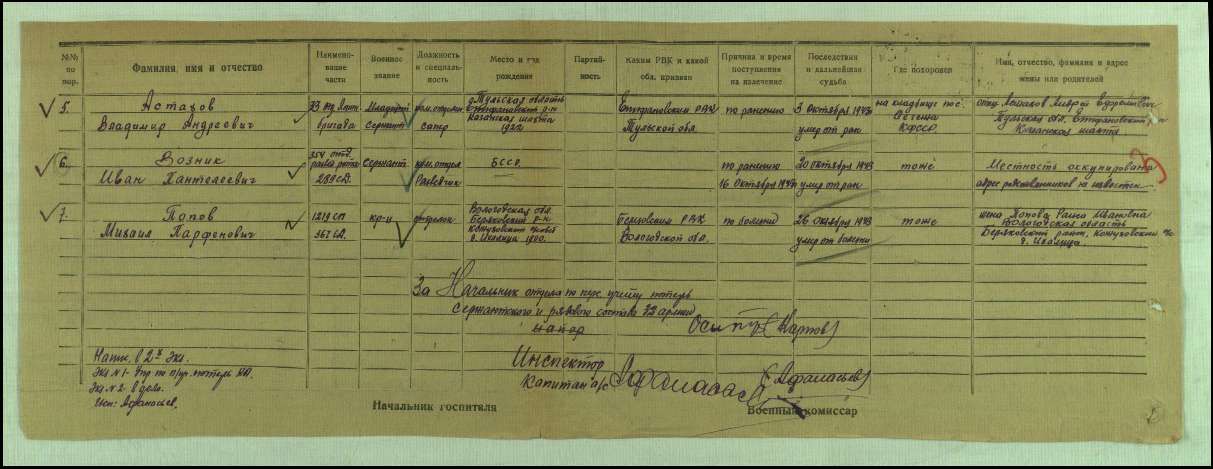 №№ по пор.
Фамилия, имя и отчество
Наименование части
Военное звание
Должность и специальность
Место и год рождения
Партийность
Каким РВК и какой обл. призван
Причина и время поступления на излечение
Последствия и дальнейшая судьба
Где похоронен
Имя, отчество, фамилия и адрес жены или родителей
5. Астахов
Владимир Андреевич
бригада
Младший
Сержант
ком. отделен
сапер
Тульская область
Казанская шахта
1922
РВК
Тульской обл.
по ранению
3 октября 1943
умер от ран
на кладбище пос.
КФССР
отец
Тульская обл.
Казанская шахта
6. Возник
Иван Пантелеевич
354 отд.
разв. рота
289 СД.
Сержант
ком. отдел
Разведчик
БССР
по ранению
16 Октября 1943
20 октября 1943
умер от ран
тоже
Местность оккупирована
адрес родственников не известен
7. Попов
Михаил Парфенович
1219 СП
367 СД.
кр-ц
стрелок
Вологодская обл.
1900.
РВК
Вологодской обл.
по болезни
26 октября 1943
умер от болезни
тоже
жена Попова Ивановна
Вологодская область
За Начальник отдела по перс. учету потерь
Сержантского и рядового состава 32 армии
майор
(Карпов)
Инспектор
Капитан а/с
(Афанасьев)
Напеч. в 2х экз.
Экз. № 1 - Упр по п/уч. потерь КА.
Экз. № 2 - в дело.
Исп: Афанасьев.
Начальник госпиталя
Военный комиссар